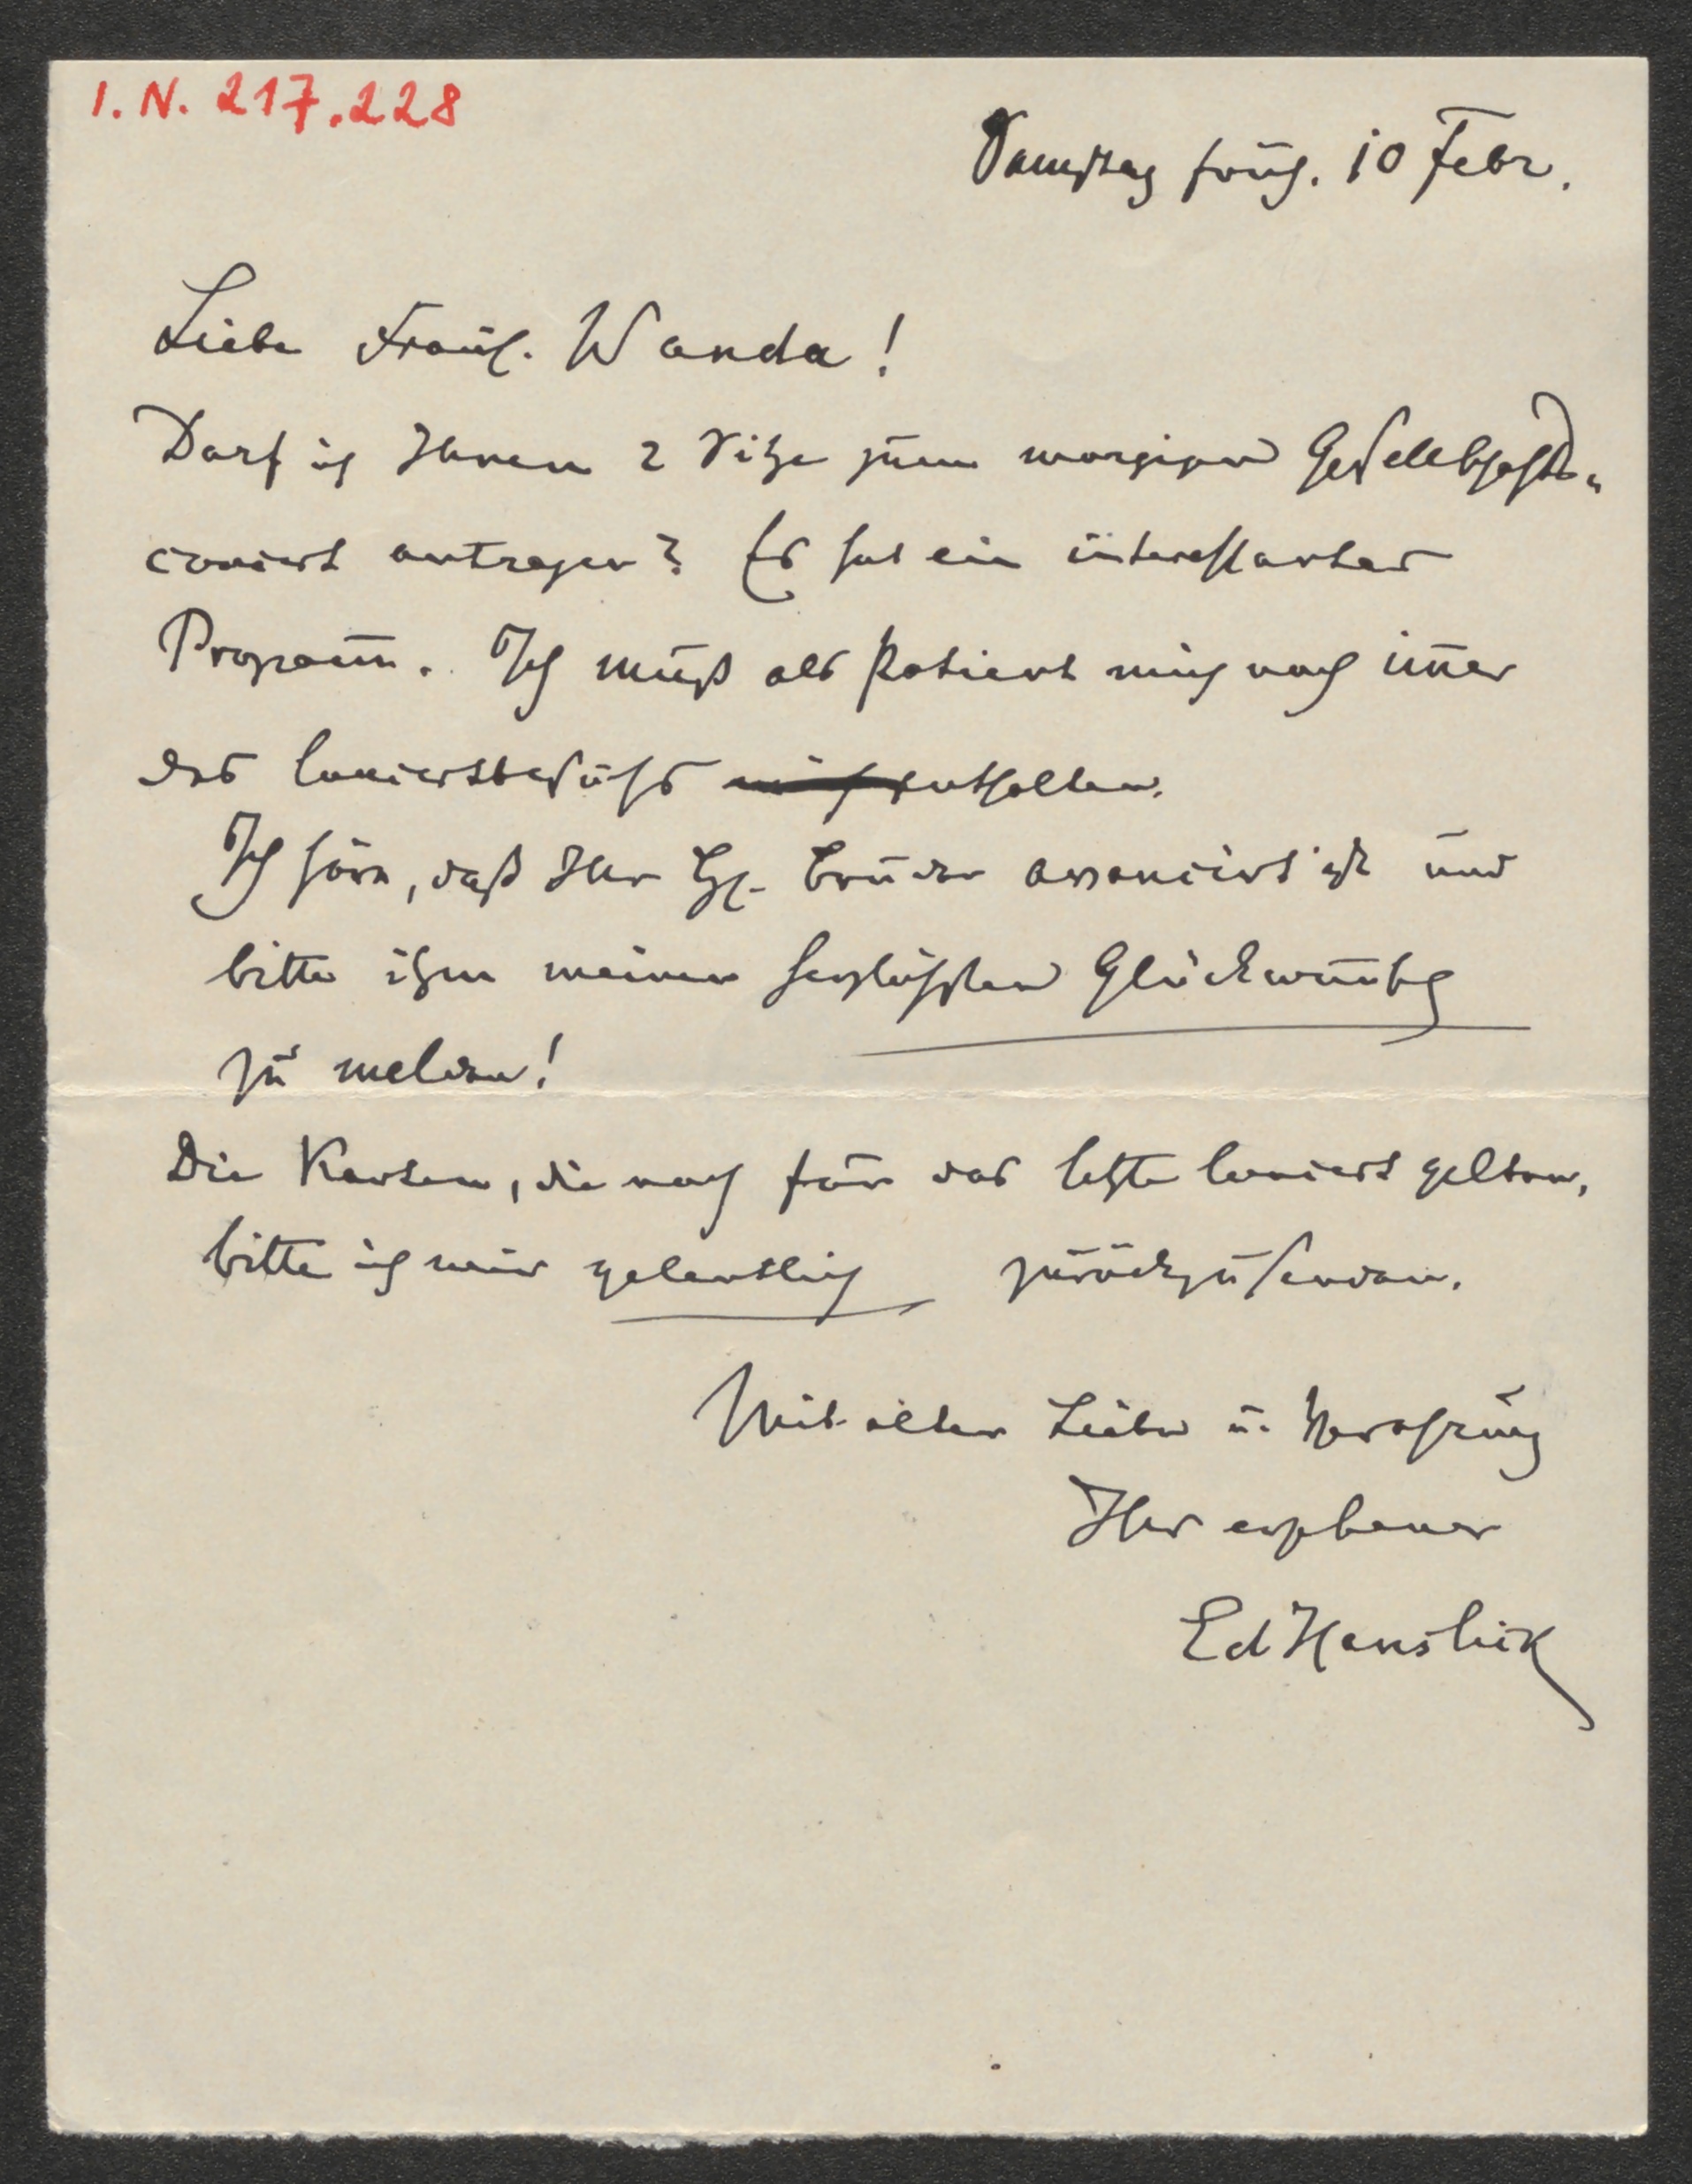 I. N. 217.228
Samstag früh. 10 Febr.
Liebe Fräul. Wanda!
Darf ich Ihnen 2 Sitze zum morgigen Gesellschafts-
concert antragen? Es hat ein interessantes
Programm. Ich muß als Patient mich noch immer
des Concertbesuchs enthalten.
Ich höre, daß Ihr Hr. Bruder avancirt ist und
bitte ihm meinen herzlichsten Glückwunsch
zu melden!
Die Karten, die noch für das letzte Concert gelten,
bitte ich mir gelentlich zurückzusenden.
Mit alter Liebe u. Verehrung
Ihr ergebener
Ed Hanslick